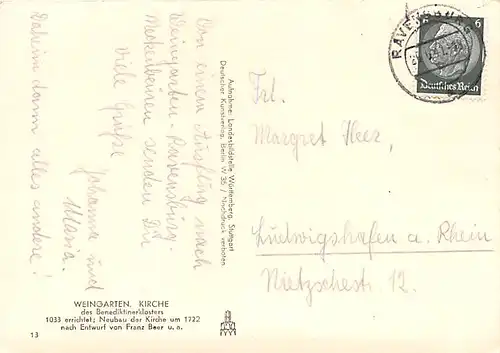 Von einem Ausflug nach
Weingarten-Ravensburg-
Meckenbeuren senden Dir
viele Grüße
Johanna und
Maria.
Daheim dann alles andere!
Aufnahme: Landesbildstelle Württemberg, Stuttgart
Deutscher Kunstverlag, Berlin W 35 / Nachdruck verboten
WEINGARTEN, KIRCHE
des Benediktinerklosters
1053 errichtet; Neubau der Kirche um 1722
nach Entwurf von Franz Beer u. a.
13
RAVENSBURG
6
Deutsches Reich
Frl.
Margret Heer,
Ludwigshafen a. Rhein
Nietzschestr. 12.